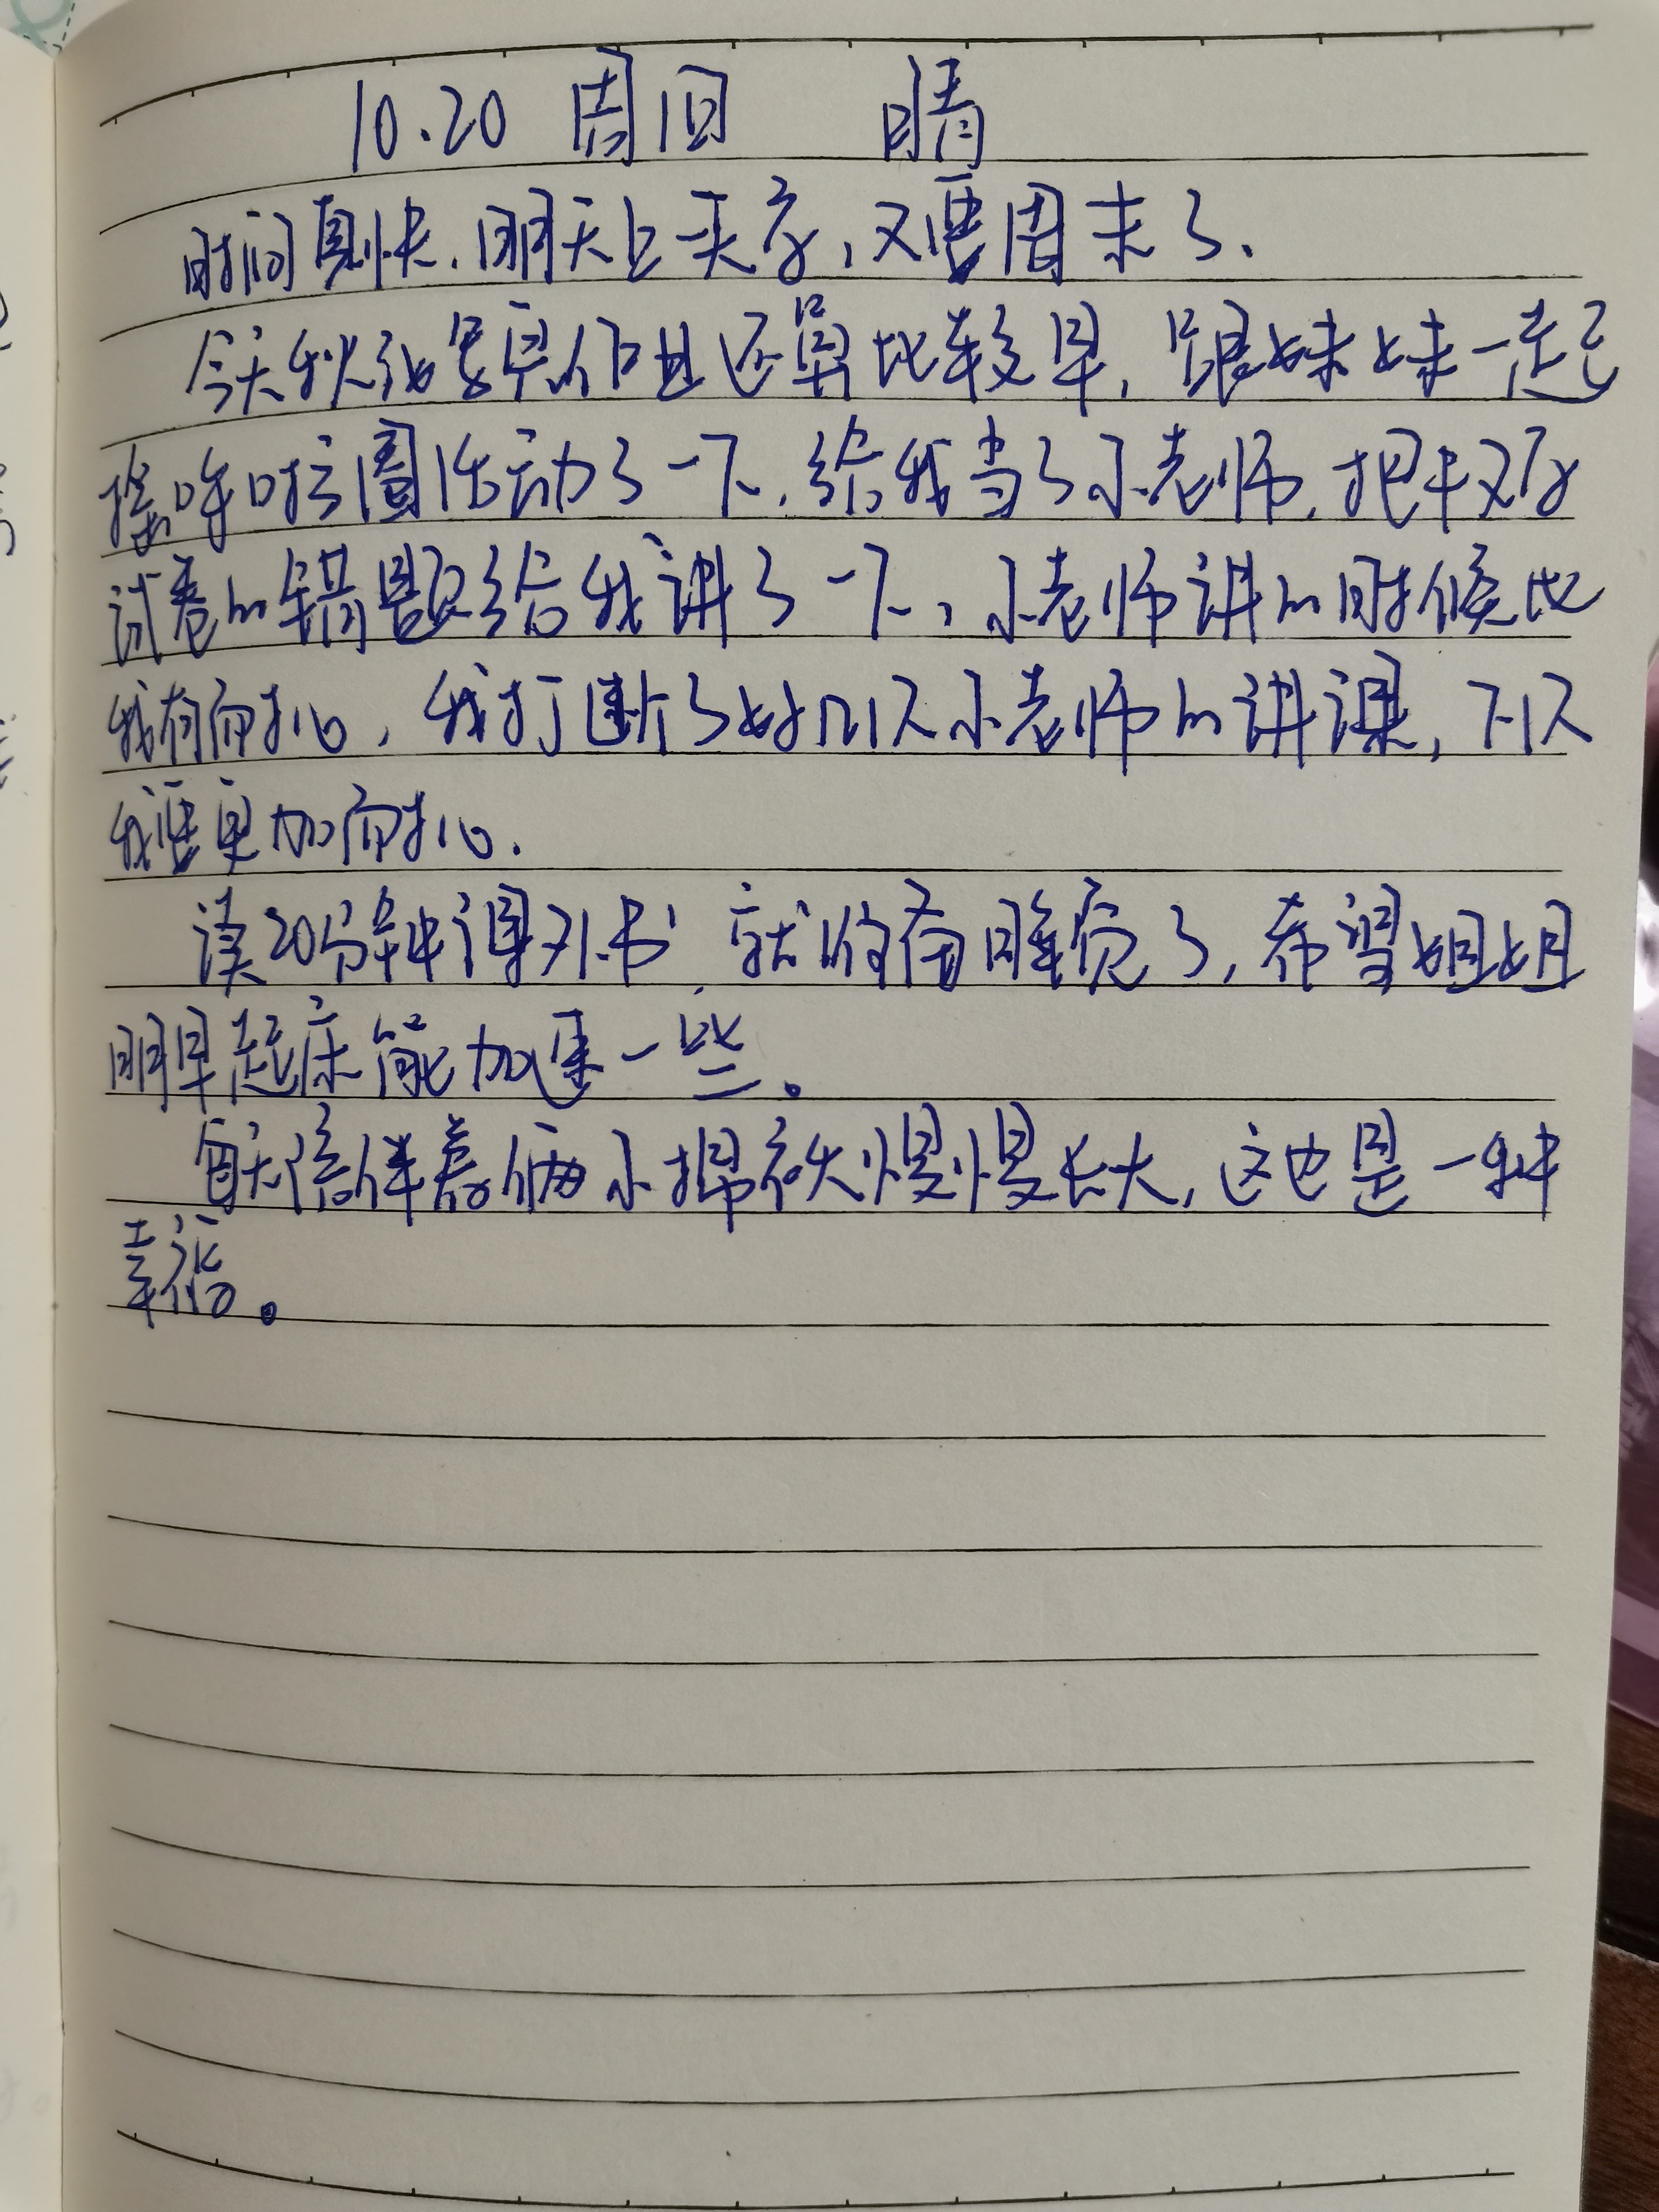 10.20 周四 晴
时间真快,明天上一天学,又要周末了.
今天秋泓写早作业还算比较早,跟妹妹一起
摇呼啦圈活动了一下.给我当了小老师,把半对
试卷的错题给我讲了一下,小老师讲的时候比
我有耐心,我打断了好几次小老师的讲课,下次
我要更加耐心.
读20分钟课外书,就准备睡觉了,希望姐姐
明早起床能加速一些。
每天陪伴着俩小棉袄慢慢长大,这也是一种
幸福。